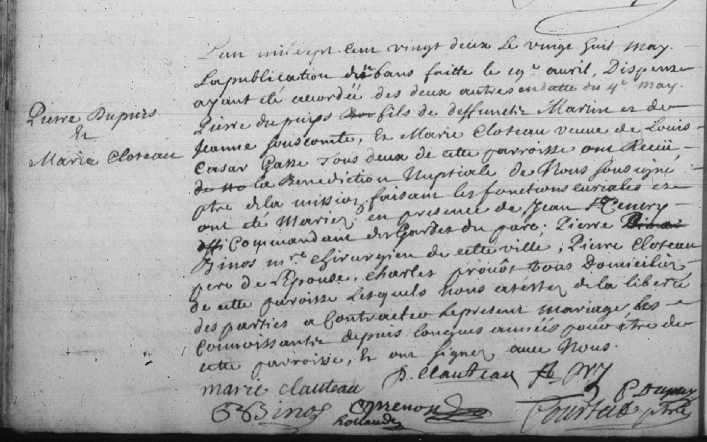 L'an mil sept cent vingt deux le vingt huit may.
La publication des bans faitte le 19e avril, Dispense
ayant été accordée des deux autres en datte du 4e may.
Pierre Dupuis
et
Marie Cloteau
Pierre dupuips fils de deffuncts Martin et de
Jeanne souscomte, Et Marie Cloteau veuve de Louis
Cesar Gasse Tous deux de cette parroisse ont Receü
la Benediction Nuptiale de Nous sousigné
ptre de la mission faisant les fonctions curiales et
ont été Mariez en presence de Jean
Commandant des Gardes du parc; Pierre
Binos mre chirurgien de cette ville, Pierre Cloteau
pere de l'Epouse, Charles prouôt tous Domiciliez
de cette paroisse Lesquels nous attestez de la liberté
des parties a Contracter le present mariage, les
Connoissants depuis longues années pour être de
cette parroisse, Et ont signez avec Nous.
marie clauteau P. Clauteau
P Dupuy
Binos Courteu ptre